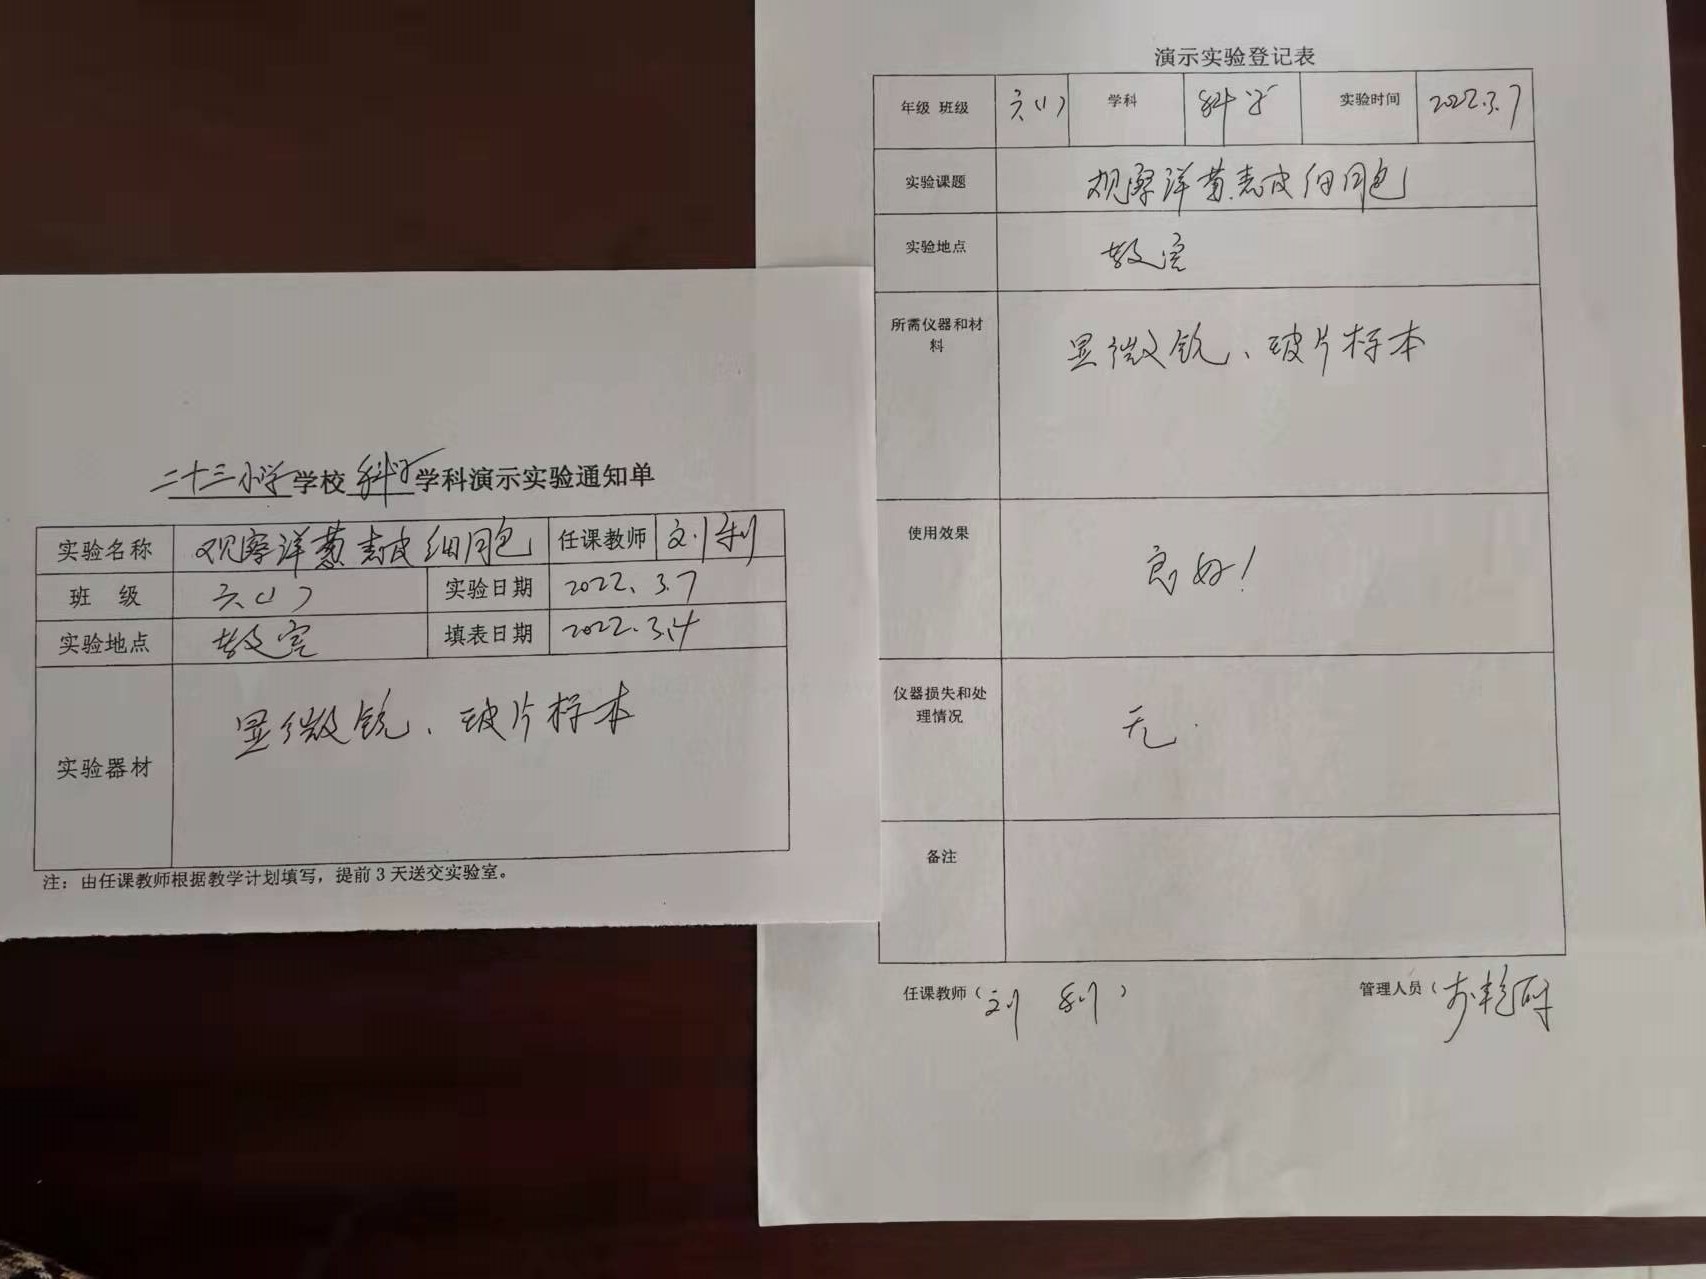 二十三小学学校科学学科演示实验通知单
实验名称 观察洋葱表皮细胞 任课教师 刘利
班 级 六(1) 实验日期 2022.3.7
实验地点 教室 填表日期 2022.3.4
实验器材 显微镜、玻片标本
注：由任课教师根据教学计划填写，提前3天送交实验室。
演示实验登记表
年级 班级 六(1) 学科 科学 实验时间 2022.3.7
实验课题 观察洋葱表皮细胞
实验地点 教室
所需仪器和材
料
显微镜、玻片标本
使用效果 良好！
仪器损失和处
理情况
无.
备注
任课教师（刘 利） 管理人员（